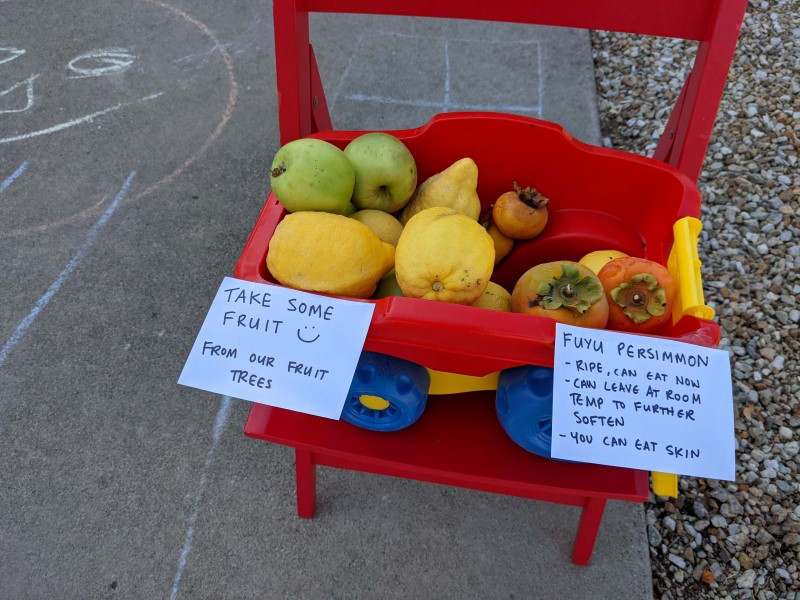 TAKE SOME
FRUIT ☺
FROM OUR FRUIT
TREES
FUYU PERSIMMON
- RIPE, CAN EAT NOW
- CAN LEAVE AT ROOM
TEMP TO FURTHER
SOFTEN
- YOU CAN EAT SKIN